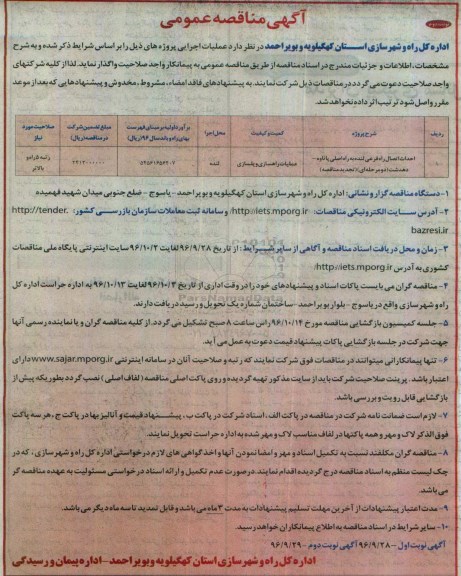 آگهی مناقصه عمومی
اداره کل راه و شهرسازی استان کهگیلویه و بویراحمد در نظر دارد عملیات اجرایی پروژه های ذیل را بر اساس شرایط ذکر شده و به شرح
مشخصات، اطلاعات و جزئیات مندرج در اسناد مناقصه از طریق مناقصه عمومی به پیمانکار واجد صلاحیت واگذار نماید. لذا از کلیه شرکتهای
واجد صلاحیت دعوت می گردد در مناقصات ذیل شرکت نمایند. به پیشنهادهای فاقد امضاء، مشروط، مخدوش و پیشنهادهایی که بعد از موعد
مقرر واصل شود ترتیب اثر داده نخواهد شد.
ردیف شرح پروژه کمیت و کیفیت محل اجرا برآورد اولیه بر مبنای فهرست بهای راه و باند سال ۹۶ (ریال) مبلغ تضمین شرکت در مناقصه (ریال) صلاحیت مورد نیاز
احداث اتصال راه فرعی لنده به راه اصلی پاتاوه - دهدشت (دو مرحله ای) (تجدید مناقصه) عملیات راهسازی و پلسازی لنده رتبه ۵ راه و بالاتر
۱- دستگاه مناقصه گزار و نشانی: اداره کل راه و شهرسازی استان کهگیلویه و بویراحمد - یاسوج - ضلع جنوبی میدان شهید فهمیده
۲- آدرس سایت الکترونیکی مناقصات: http://iets.mporg.ir و سامانه ثبت معاملات سازمان بازرسی کشور: http://tender.
bazresi.ir
۳- زمان و محل دریافت اسناد مناقصه و آگاهی از سایر شرایط: از تاریخ ۹۶/۹/۲۸ لغایت ۹۶/۱۰/۲ سایت اینترنتی پایگاه ملی مناقصات
کشوری به آدرس http://iets.mporg.ir
۴- مناقصه گران می بایست پاکات اسناد و پیشنهادهای خود را در وقت اداری از تاریخ ۹۶/۱۰/۳ لغایت ۹۶/۱۰/۱۳ به اداره حراست اداره کل
راه و شهرسازی واقع در یاسوج - بلوار بویراحمد - ساختمان شماره یک تحویل و رسید دریافت دارند.
۵- جلسه کمیسیون بازگشایی مناقصه مورخ ۹۶/۱۰/۱۴ راس ساعت ۸ صبح تشکیل می گردد. از کلیه مناقصه گران و یا نماینده رسمی آنها
جهت شرکت در جلسه بازگشایی پاکات پیشنهاد قیمت دعوت به عمل می آید.
۶- تنها پیمانکارانی میتوانند در مناقصات فوق شرکت نمایند که رتبه و صلاحیت آنان در سامانه اینترنتی www.sajar.mporg.ir دارای
اعتبار باشد. پرینت صلاحیت شرکت باید از سایت مذکور تهیه گردیده و روی پاکت اصلی مناقصه (لفاف اصلی) نصب گردد بطوریکه پیش از
بازگشایی قابل رویت و بررسی باشد.
۷- لازم است ضمانت نامه شرکت در مناقصه در پاکت الف، اسناد شرکت در پاکت ب، پیشنهاد قیمت و آنالیز بها در پاکت ج، هر سه پاکت
فوق الذکر لاک و مهر و همه پاکتها در لفاف مناسب لاک و مهر شده به اداره حراست تحویل نمایند.
۸- مناقصه گران مکلفند نسبت به تکمیل اسناد و مهر و امضا نمودن آنها و اخذ گواهی های لازم درخواستی اداره کل راه و شهرسازی، که در
چک لیست منظم به اسناد مناقصه درج گردیده اقدام نمایند. در صورت عدم تکمیل و ارائه اسناد درخواستی مسئولیت به عهده مناقصه گر
می باشد.
۹- مدت اعتبار پیشنهادات از آخرین مهلت تسلیم پیشنهادات به مدت ۳ ماه می باشد و قابل تمدید تا سه ماه دیگر می باشد.
۱۰- سایر شرایط در اسناد مناقصه به اطلاع پیمانکاران خواهد رسید.
آگهی نوبت اول - ۹۶/۹/۲۸ آگهی نوبت دوم - ۹۶/۹/۲۹
اداره کل راه و شهرسازی استان کهگیلویه و بویراحمد - اداره پیمان و رسیدگی